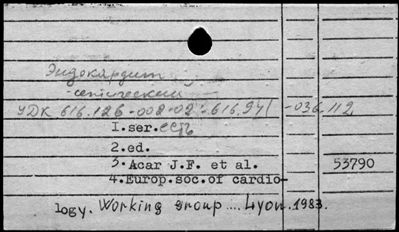 Эндокардит
септический
УДК 616.126-008-02:616.94(-036.112
1. ser. есть
2. ed.
3. Acar J.F. et al. 53790
4. Europ.soc.of cardio-
logy. Working group .... Lyon.1983.